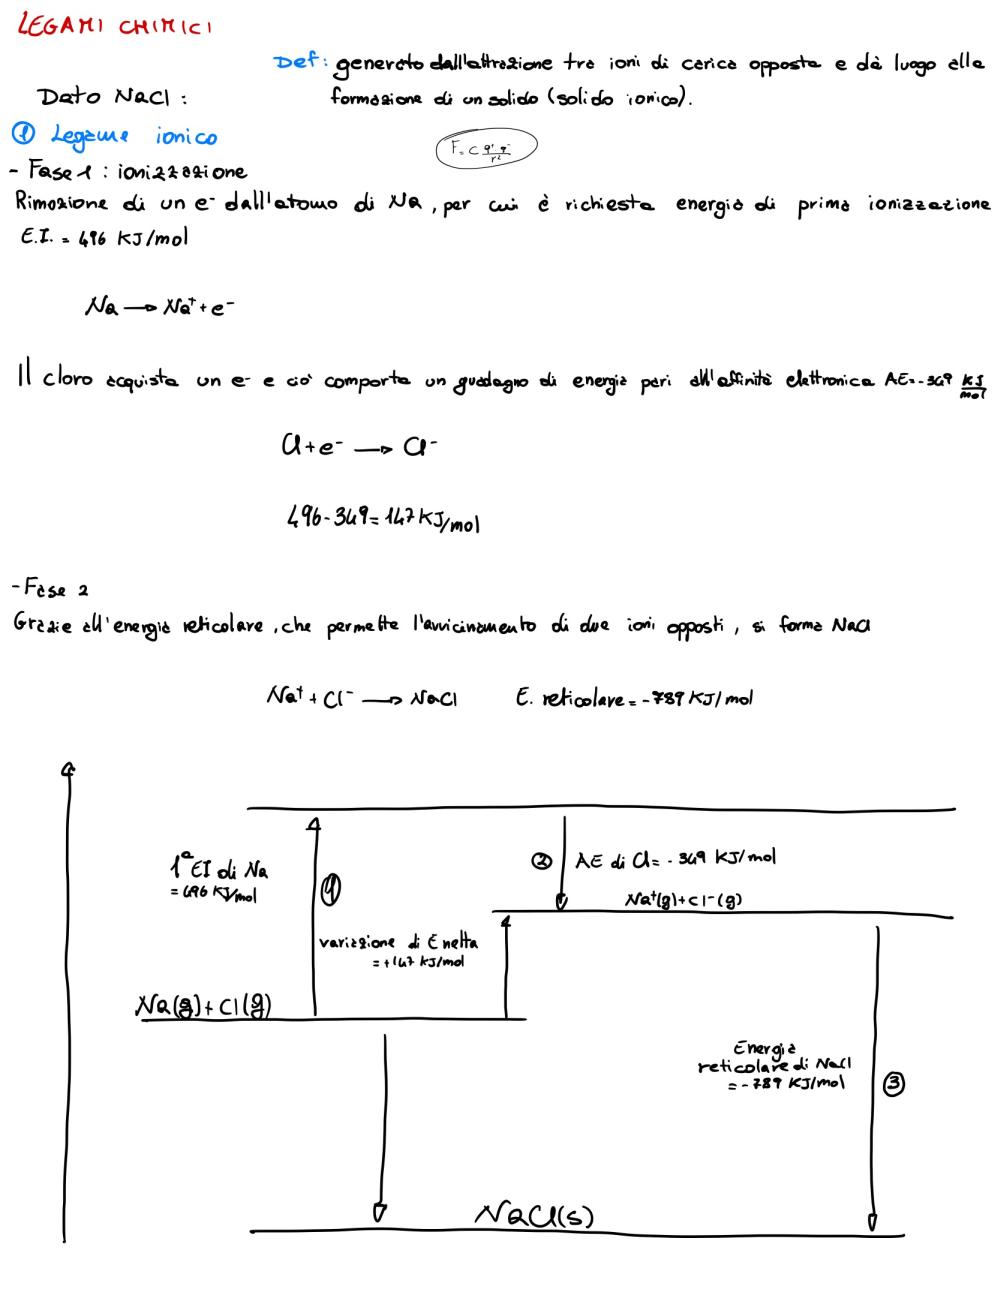 LEGAMI CHIMICI
Def: generato dall'attrazione tra ioni di carica opposta e dà luogo alla
formazione di un solido (solido ionico).
Dato NaCl:
① Legame ionico
F = C q⁺ q⁻ / r²
- Fase 1: ionizzazione
Rimozione di un e⁻ dall'atomo di Na, per cui è richiesta energia di prima ionizzazione
E.I. = 496 KJ/mol
Na → Na⁺ + e⁻
Il cloro acquista un e⁻ e ciò comporta un guadagno di energia pari all'affinità elettronica AE=-349 KJ/mol
Cl + e⁻ → Cl⁻
496-349=147 KJ/mol
- Fase 2
Grazie all'energia reticolare, che permette l'avvicinamento di due ioni opposti, si forma NaCl
Na⁺ + Cl⁻ → NaCl E. reticolare = -789 KJ/mol
1ª EI di Na
= 496 KJ/mol
①
② AE di Cl = -349 KJ/mol
Na⁺(g)+Cl⁻(g)
variazione di E netta
= +147 KJ/mol
Na(g) + Cl(g)
Energia
reticolare di NaCl
= -789 KJ/mol
③
NaCl(s)